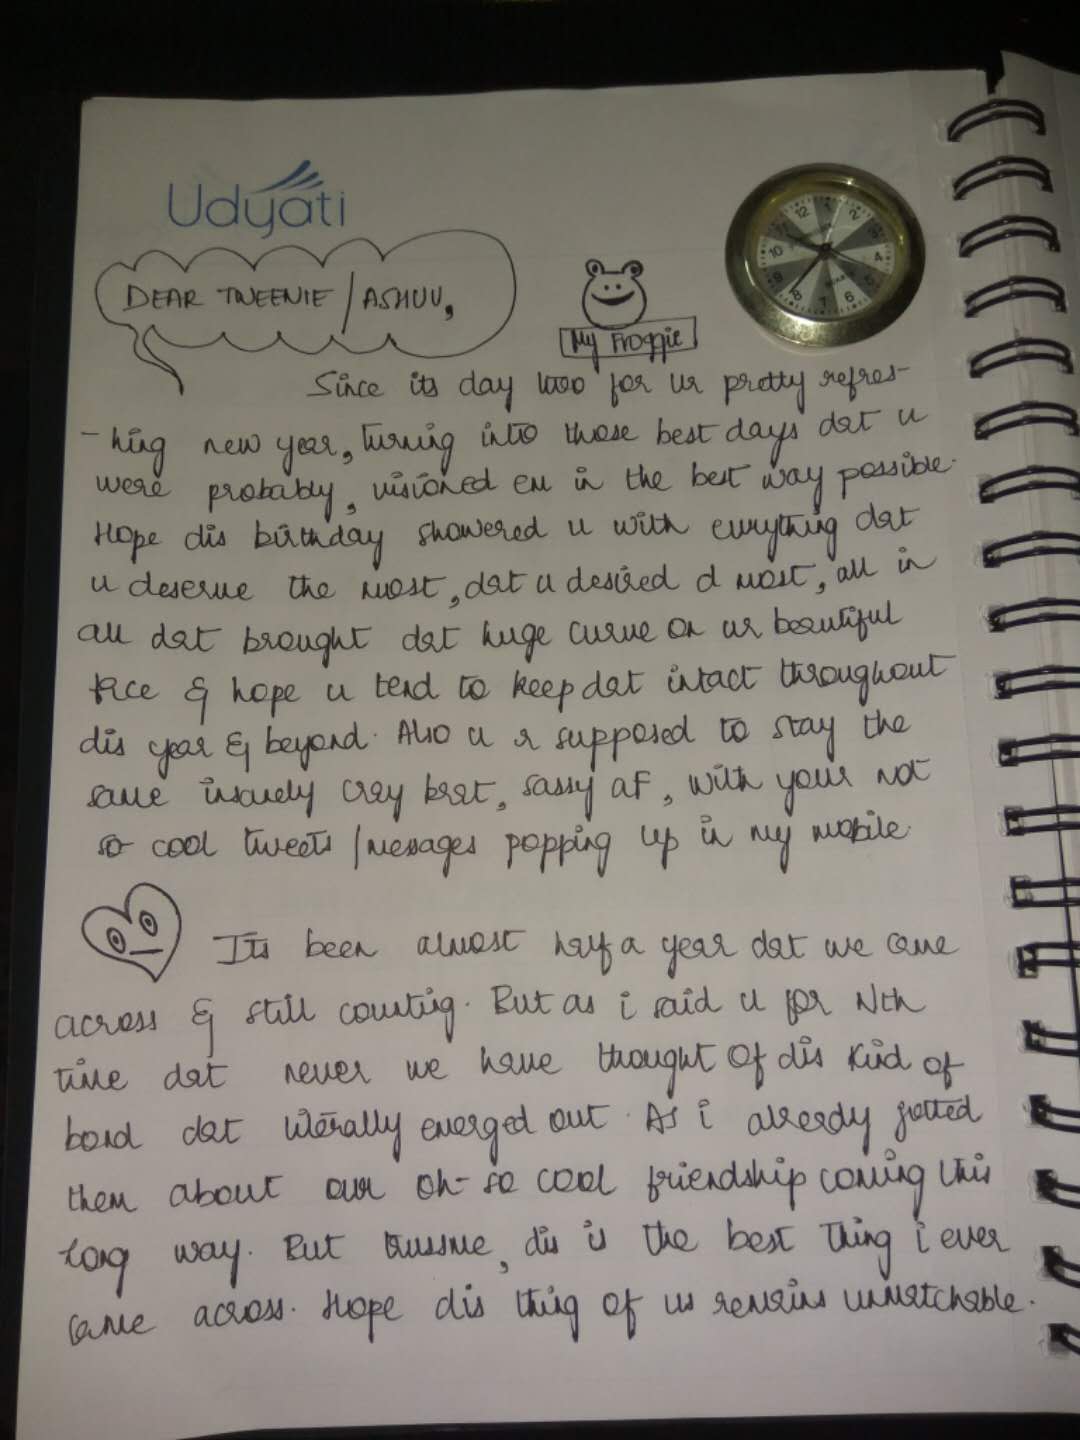 Udyati
DEAR TWEENIE / ASHUU,
My Froggie
12 1 2 3 4 5 6 7 8 9 10 11
Since its day two for ur pretty refres-
-hing new year, turning into those best days dat u
were probably, visioned em in the best way possible.
Hope dis birthday showered u with everything dat
u deserve the most, dat u desired d most, all in
all dat brought dat huge curve on ur beautiful
face & hope u tend to keep dat intact throughout
dis year & beyond. Also u r supposed to stay the
same insanely cray brat, sassy aF, with your not
so cool tweets / messages popping up in my mobile
Its been almost half a year dat we came
across & still counting. But as i said u for Nth
time dat never we have thought of dis kind of
bond dat literally emerged out. As i already jotted
them about our oh-so cool friendship coming this
long way. But trussme, dis is the best thing i ever
came across. Hope dis thing of us remains unmatchable.